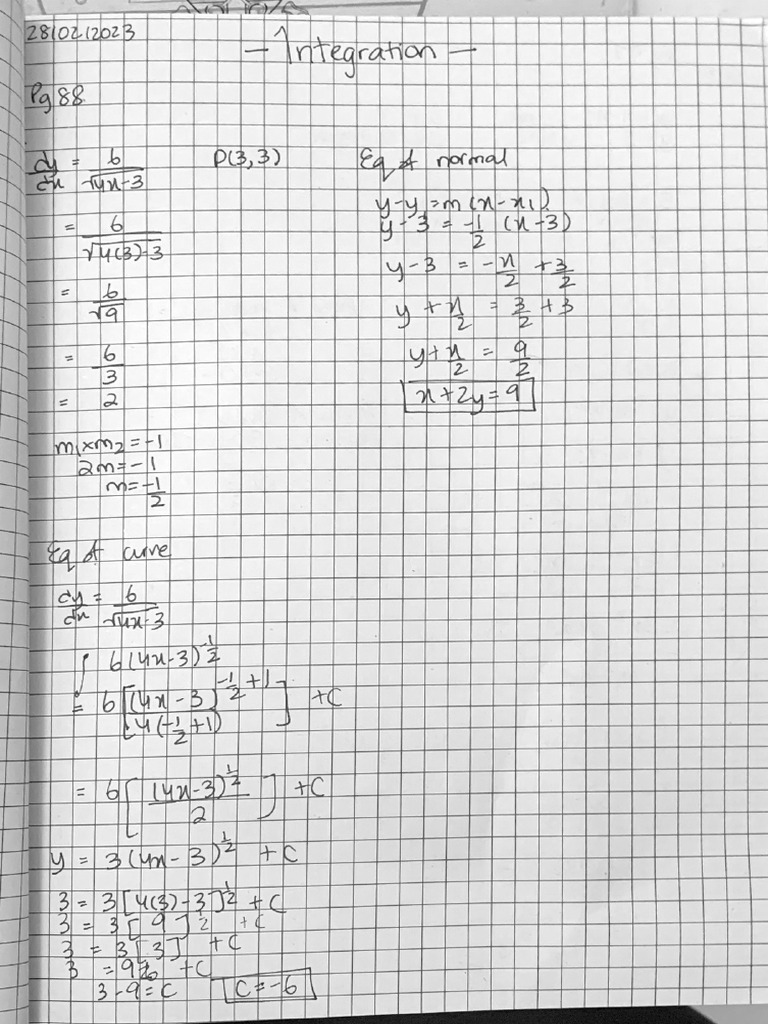 28/02/2023
- Integration -
Pg 88
dy/dx = 6/√4x-3 P(3,3)
= 6/√4(3)-3
= 6/√9
= 6/3
= 2
m₁×m₂ = -1
2m = -1
m = -1/2
Eq of normal
y-y₁ = m(x-x₁)
y-3 = -1/2 (x-3)
y-3 = -x/2 + 3/2
y + x/2 = 3/2 + 3
y + x/2 = 9/2
x+2y=9
Eq of curve
dy/dx = 6/√4x-3
∫ 6(4x-3)^-1/2
= 6[(4x-3)^-1/2+1 / 4(-1/2+1)] + C
= 6[(4x-3)^1/2 / 2] + C
y = 3(4x-3)^1/2 + C
3 = 3[4(3)-3]^1/2 + C
3 = 3[9]^1/2 + C
3 = 3[3] + C
3 = 9 + C
3-9 = C C = -6